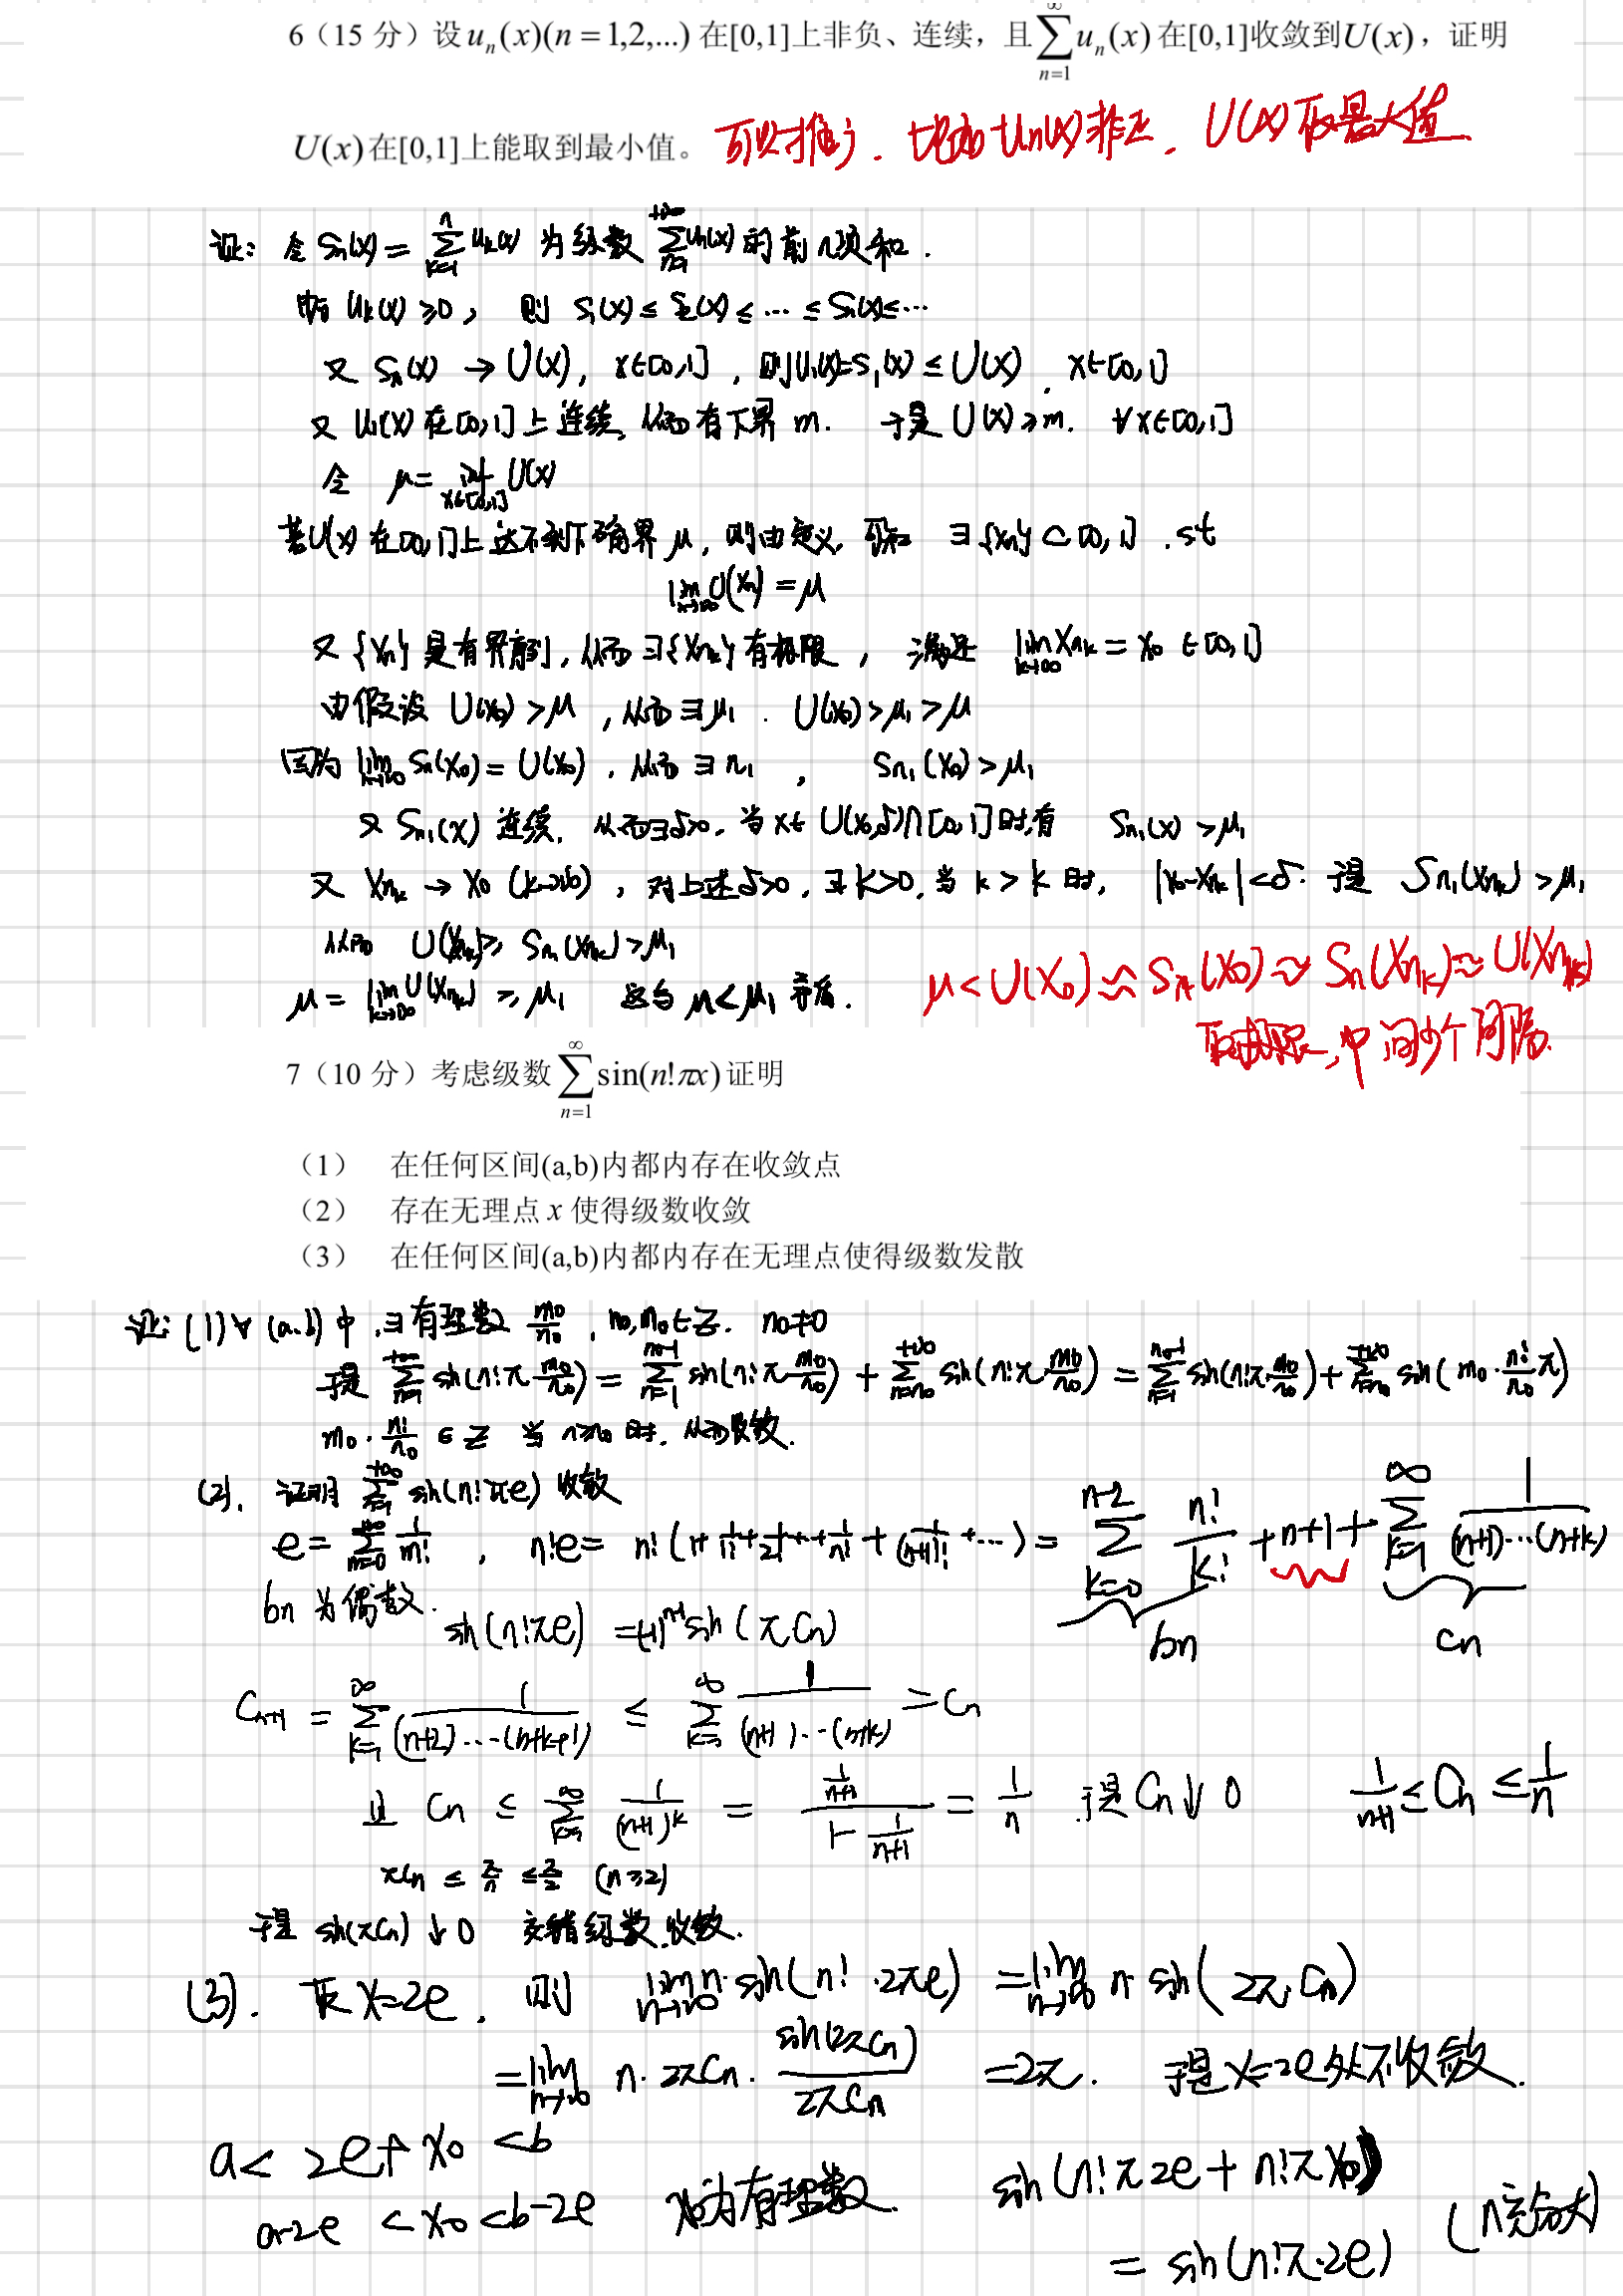 6（15 分）设 $u_n(x)(n=1,2,...)$ 在[0,1]上非负、连续，且$\sum_{n=1}^{\infty}u_n(x)$在[0,1]收敛到$U(x)$，证明
$U(x)$在[0,1]上能取到最小值。 可以推广. 比如 $u_n(x)$非正. $U(x)$取最大值
证: 令 $S_n(x)=\sum_{k=1}^{n}u_k(x)$ 为级数 $\sum_{n=1}^{+\infty}u_n(x)$ 的前n项和.
由 $u_k(x)\geq 0$, 则 $S_1(x)\leq S_2(x)\leq\cdots\leq S_n(x)\leq\cdots$
又 $S_n(x)\to U(x)$, $x\in[0,1]$, 则$u_1(x)=S_1(x)\leq U(x)$. $x\in[0,1]$
又 $u_1(x)$ 在[0,1]上连续, 从而有下界 m. 于是 $U(x)\geq m$. $\forall x\in[0,1]$
令 $\mu=\inf_{x\in[0,1]}U(x)$
若$U(x)$在[0,1]上达不到下确界 $\mu$, 则由定义, 可知 $\exists\{x_n\}\subset[0,1]$. st
$\lim_{n\to\infty}U(x_n)=\mu$
又 $\{x_n\}$ 是有界数列, 从而$\exists\{x_{n_k}\}$有极限, 满足 $\lim_{k\to\infty}x_{n_k}=x_0\in[0,1]$
由假设 $U(x_0)>\mu$, 从而$\exists\mu_1$. $U(x_0)>\mu_1>\mu$
因为 $\lim_{n\to\infty}S_n(x_0)=U(x_0)$, 从而$\exists n_1$, $S_{n_1}(x_0)>\mu_1$
又 $S_{n_1}(x)$ 连续, 从而$\exists\delta>0$, 当$x\in U(x_0,\delta)\cap[0,1]$时,有 $S_{n_1}(x)>\mu_1$
又 $x_{n_k}\to x_0$ $(k\to\infty)$, 对上述$\delta>0$, $\exists K>0$, 当 $k>K$ 时, $|x_0-x_{n_k}|<\delta$. 于是 $S_{n_1}(x_{n_k})>\mu_1$
从而 $U(x_{n_k})\geq S_{n_1}(x_{n_k})>\mu_1$
$\mu=\lim_{k\to\infty}U(x_{n_k})\geq\mu_1$ 这与 $\mu<\mu_1$ 矛盾.
$\mu<U(x_0)\approx S_n(x_0)\approx S_n(x_{n_k})\approx U(x_{n_k})$
取极限, 中间少个间隔.
7（10 分）考虑级数$\sum_{n=1}^{\infty}\sin(n!\pi x)$证明
（1） 在任何区间(a,b)内都内存在收敛点
（2） 存在无理点 x 使得级数收敛
（3） 在任何区间(a,b)内都内存在无理点使得级数发散
证: (1) $\forall$ (a,b) 中, $\exists$有理数 $\frac{m_0}{n_0}$, $n_0,m_0\in Z$. $n_0\neq 0$
于是 $\sum_{n=1}^{+\infty}\sin(n!\pi\frac{m_0}{n_0})=\sum_{n=1}^{n_0-1}\sin(n!\pi\frac{m_0}{n_0})+\sum_{n=n_0}^{+\infty}\sin(n!\pi\frac{m_0}{n_0})=\sum_{n=1}^{n_0-1}\sin(n!\pi\frac{m_0}{n_0})+\sum_{n=n_0}^{+\infty}\sin(m_0\cdot\frac{n!}{n_0}\pi)$
$m_0\cdot\frac{n!}{n_0}\in Z$ 当 $n\geq n_0$ 时. 从而收敛.
(2). 证明 $\sum_{n=1}^{+\infty}\sin(n!\pi e)$ 收敛
$e=\sum_{m=0}^{+\infty}\frac{1}{m!}$, $n!e=n!(1+\frac{1}{1!}+\frac{1}{2!}+\cdots+\frac{1}{n!}+\frac{1}{(n+1)!}+\cdots)=\sum_{k=0}^{n-2}\frac{n!}{k!}+n+1+\sum_{k=1}^{\infty}\frac{1}{(n+1)\cdots(n+k)}$
$b_n$ 为偶数. $b_n$ $c_n$
$\sin(n!\pi e)=(-1)^{n+1}\sin(\pi c_n)$
$c_{n+1}=\sum_{k=1}^{\infty}\frac{1}{(n+2)\cdots(n+k+1)}\leq\sum_{k=1}^{\infty}\frac{1}{(n+1)\cdots(n+k)}=c_n$
且 $c_n\leq\sum_{k=1}^{\infty}\frac{1}{(n+1)^k}=\frac{\frac{1}{n+1}}{1-\frac{1}{n+1}}=\frac{1}{n}$ 于是 $c_n\downarrow 0$ $\frac{1}{n+1}\leq c_n\leq\frac{1}{n}$
$\pi c_n\leq\frac{\pi}{n}\leq\frac{\pi}{2}$ $(n\geq 2)$
于是 $\sin(\pi c_n)\downarrow 0$ 交错级数收敛.
(3). 取 $x=2e$, 则 $\lim_{n\to\infty}n\cdot\sin(n!\cdot 2\pi e)=\lim_{n\to\infty}n\cdot\sin(2\pi c_n)$
$=\lim_{n\to\infty}n\cdot 2\pi c_n\cdot\frac{\sin(2\pi c_n)}{2\pi c_n}=2\pi$. 于是 $x=2e$处不收敛.
$a<2e+x_0<b$
$a-2e<x_0<b-2e$ $x_0$为有理数. $\sin(n!\pi 2e+n!\pi x_0)$
$=\sin(n!\pi\cdot 2e)$ (n充分大)